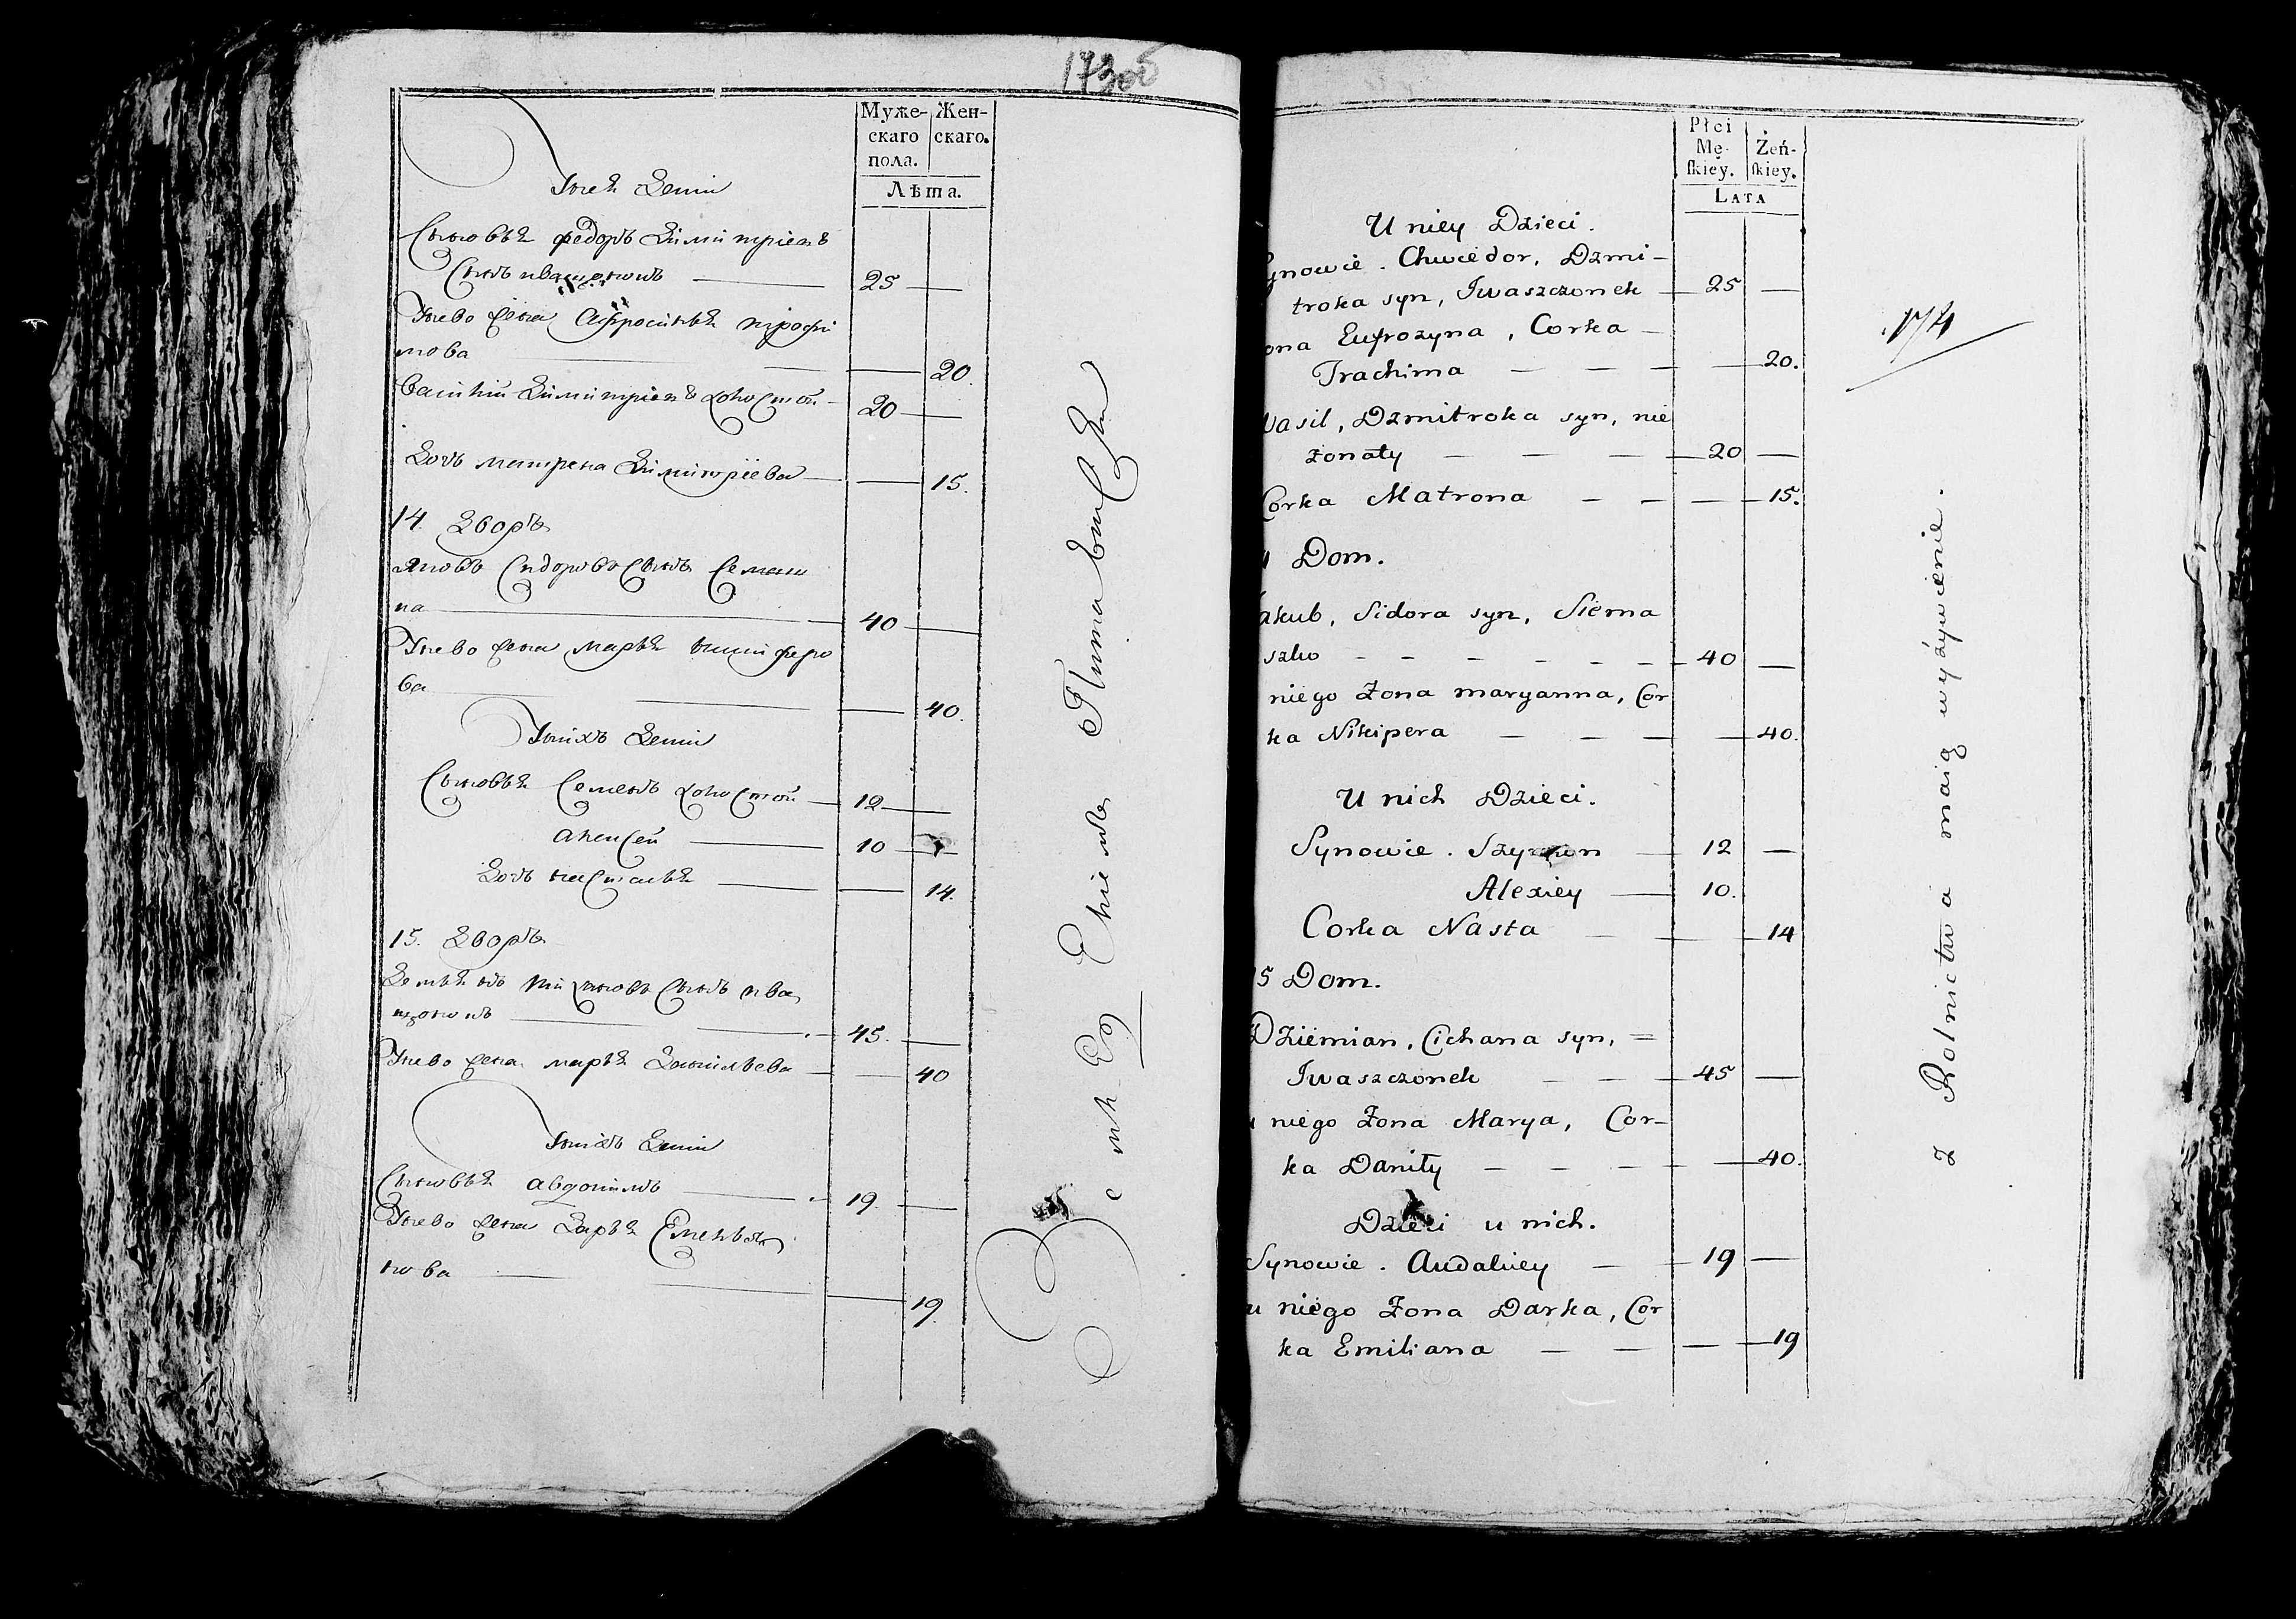 173 об
Муже-
скаго
пола.
Жен-
скаго.
Лѣта.
У неѣ Дети
Сыновья федоръ Димитріевъ
Сынъ иващонокъ 25 —
У нево жена Афросинья трофи
мова — 20.
Василий Димитріевъ холостой 20 —
Дочь матрена Димитріева — 15.
14. Дворъ
Яковъ Сидоровъ Сынъ Семаш
ка 40 —
У нево жена марья никифоро
ва — 40.
У нихъ Дети
Сыновья Семенъ холостой 12 —
алексей 10 —
Дочь настасья — 14.
15. Дворъ
Демьянъ тихановъ Сынъ ива
щонокъ 45. —
У нево жена марья Данильева — 40
У нихъ Дети
Сыновья 19. —
У нево жена Дарья Емельян
нова — 19.
174
Płci
Mę-
skiey.
Żeń-
skiey.
LATA
U niey Dzieci.
ynowie. Chwiedor, Dzmi-
troka syn, Iwaszczonek — 25 —
ona Eufrozyna, Corka —
Trachima — — — — 20.
Wasil, Dzmitroka syn, nie
żonaty — — — 20 —
Corka Matrona — — — 15.
4 Dom.
akub, Sidora syn, Siema
szko — — — — — — 40 —
niego Żona maryanna, Cor
ka Nikipera — — — — 40.
U nich Dzieci.
Synowie. Szymon — 12 —
Alexiey — 10.
Corka Nasta — — 14
15 Dom.
Dziemian, Cichana syn, =
Iwaszczonek — — 45 —
u niego Żona Marya, Cor-
ka Daniły — — — — 40.
Dzieci u nich.
Synowie. Audakiey — 19 —
u niego Żona Darka, Cor
ka Emiliana — — — 19
z Rolnictwa maią wyżywienie.